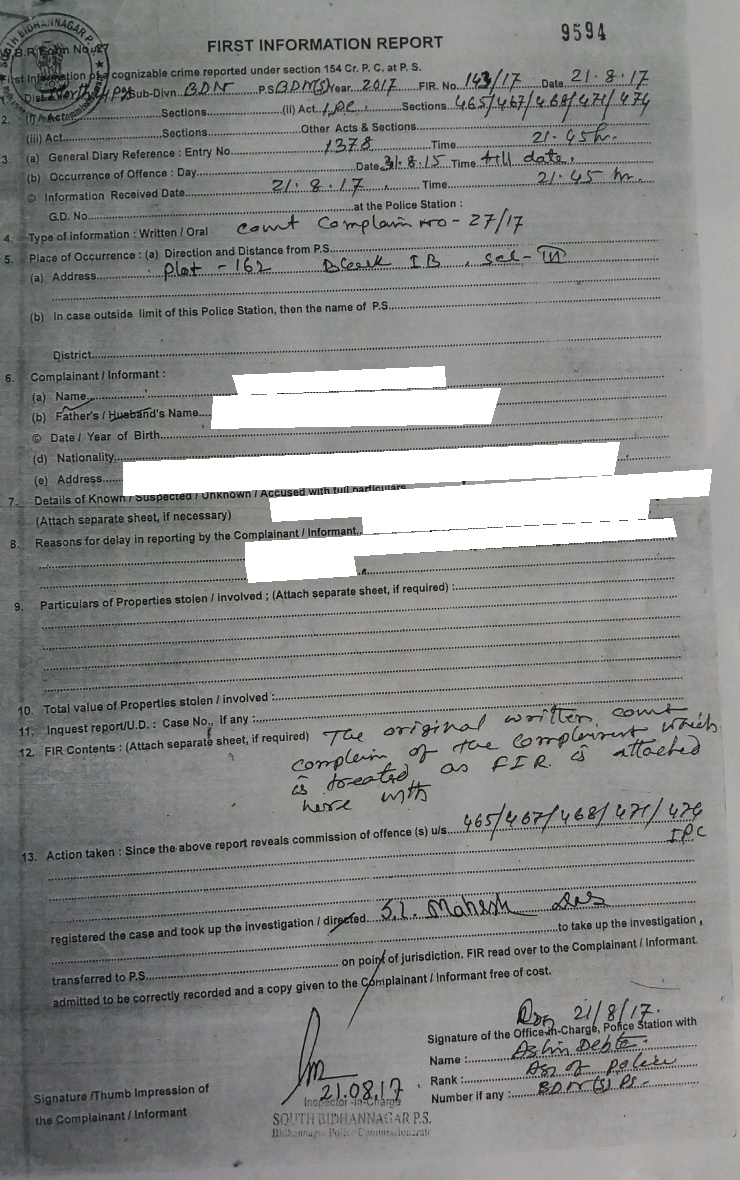 SOUTH BIDHANNAGAR P.
9594
FIRST INFORMATION REPORT
First Information of a cognizable crime reported under section 154 Cr. P. C. at P. S.
Dist. Sub-Divn. BDN P.S BDN(S) Year 2017 FIR. No. 143/17 Date 21.8.17
2. (i) Act Sections (ii) Act IPC Sections 465/467/468/471/474
(iii) Act Sections Other Acts & Sections
3. (a) General Diary Reference : Entry No. 1378 Time 21.45 hr.
(b) Occurrence of Offence : Day Date 31.8.15 Time till date.
© Information Received Date 21.8.17 Time 21.45 hr.
G.D. No. at the Police Station :
4. Type of information : Written / Oral Court Complain no - 27/17
5. Place of Occurrence : (a) Direction and Distance from P.S.
(a) Address Plot - 162 Block IB, Sec - III
(b) In case outside limit of this Police Station, then the name of P.S.
District
6. Complainant / Informant :
(a) Name
(b) Father's / Husband's Name
© Date / Year of Birth
(d) Nationality
(e) Address
7. Details of Known / Suspected / Unknown / Accused with full particulars
(Attach separate sheet, if necessary)
8. Reasons for delay in reporting by the Complainant / Informant
9. Particulars of Properties stolen / involved ; (Attach separate sheet, if required) :
10. Total value of Properties stolen / involved :
11. Inquest report/U.D. : Case No., if any :
12. FIR Contents : (Attach separate sheet, if required) The original written court
complain of the complainent which
is treated as FIR is attached
here with
13. Action taken : Since the above report reveals commission of offence (s) u/s. 465/467/468/471/474
IPC
registered the case and took up the investigation / directed S.I. Mahesh Das
to take up the investigation,
transferred to P.S. on point of jurisdiction. FIR read over to the Complainant / Informant.
admitted to be correctly recorded and a copy given to the Complainant / Informant free of cost.
21/8/17.
Signature of the Office-in-Charge, Police Station with
Name :
Rank : ASI of police
Number if any : BDN(S) PS.
21.08.17
Inspector-in-Charge
SOUTH BIDHANNAGAR P.S.
Bidhannagar Police Commissionerate
Signature /Thumb Impression of
the Complainant / Informant